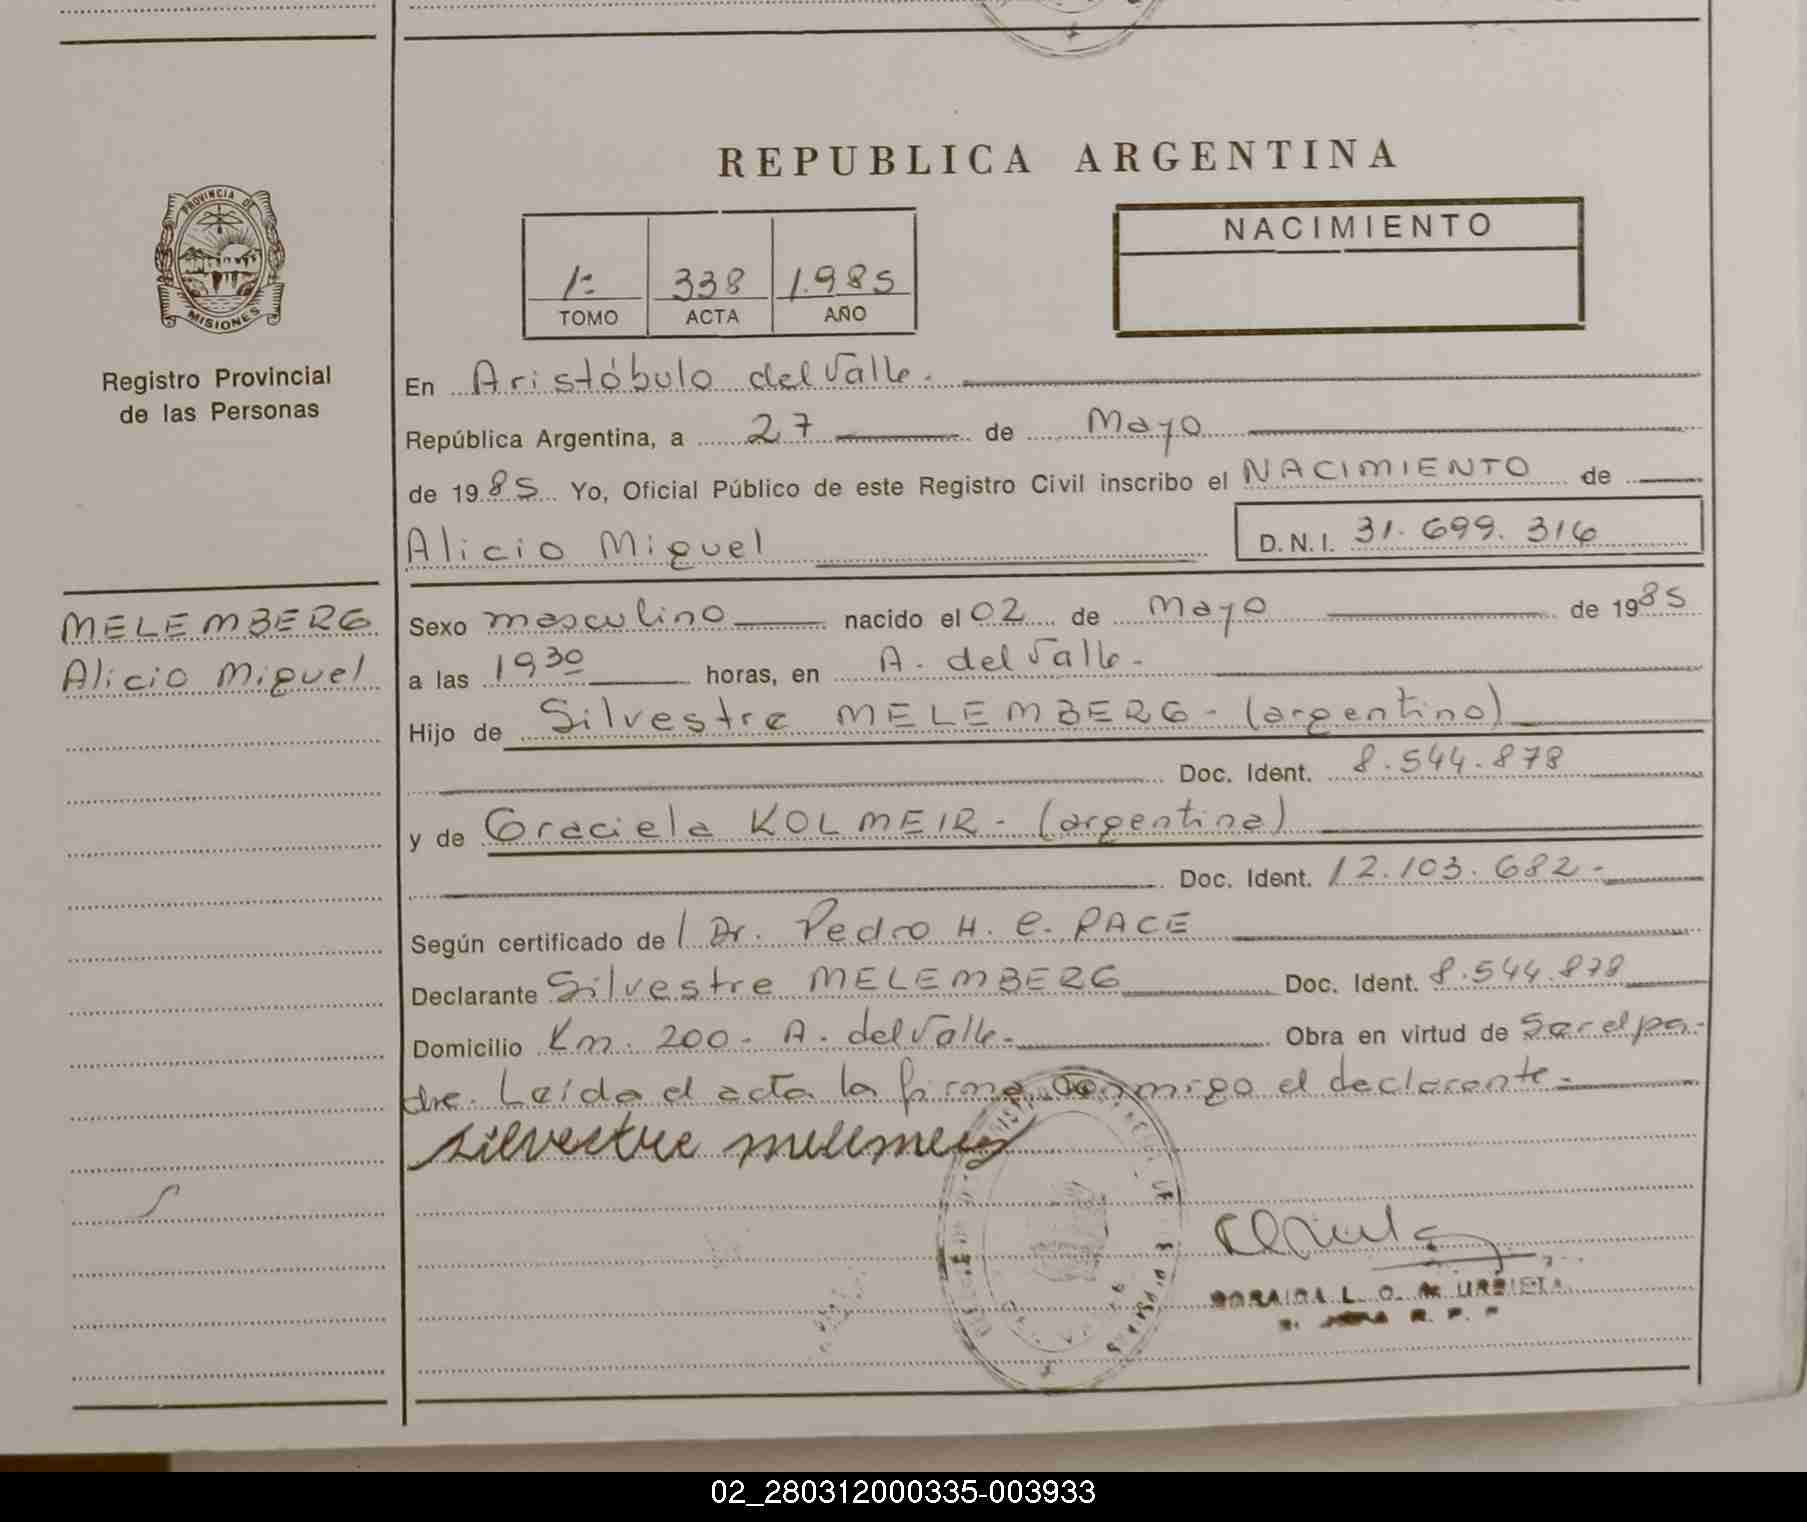 REPUBLICA ARGENTINA
PROVINCIA DE
MISIONES
Registro Provincial
de las Personas
1º 338 1.985
TOMO ACTA AÑO
NACIMIENTO
En Aristóbulo del Valle.
República Argentina, a 27 de Mayo
de 1985 Yo, Oficial Público de este Registro Civil inscribo el NACIMIENTO de
Alicio Miguel D. N. I. 31.699.316
MELEMBERG
Alicio Miguel
Sexo masculino nacido el 02 de mayo de 1985
a las 19 30 horas, en A. del Valle.
Hijo de Silvestre MELEMBERG - (argentino)
Doc. Ident. 8.544.878
y de Graciela KOLMEIR - (argentina)
Doc. Ident. 12.103.682.-
Según certificado de Dr. Pedro H. C. PACE
Declarante Silvestre MELEMBERG Doc. Ident. 8.544.878
Domicilio Km. 200 - A. del Valle. Obra en virtud de Ser el pa-
dre. Leída el acta la firma conmigo el declarante.-
silvestre
L. O. de URBIETA
02_280312000335-003933